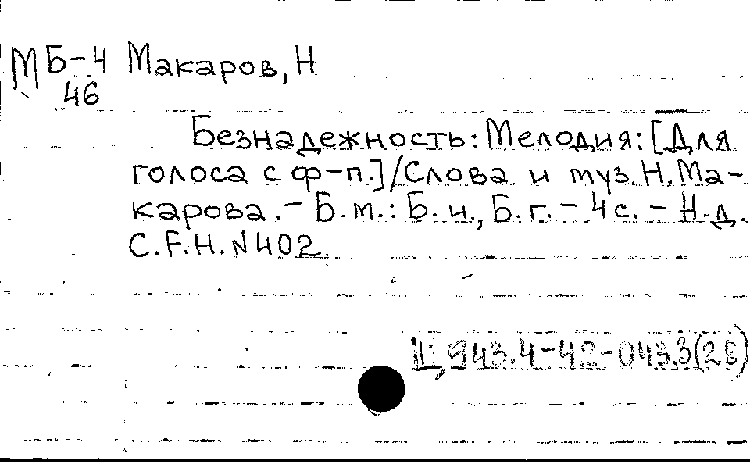 МБ-4 Макаров, Н
46
Безнадежность: Мелодия: [Для
голоса с ф-п.]/Слова и муз. Н. Ма-
карова. - Б. м.: Б. и., Б. г. - 4 с. - Н. д.
C. F. H. N 402
Щ 943.4-42-043.3(2